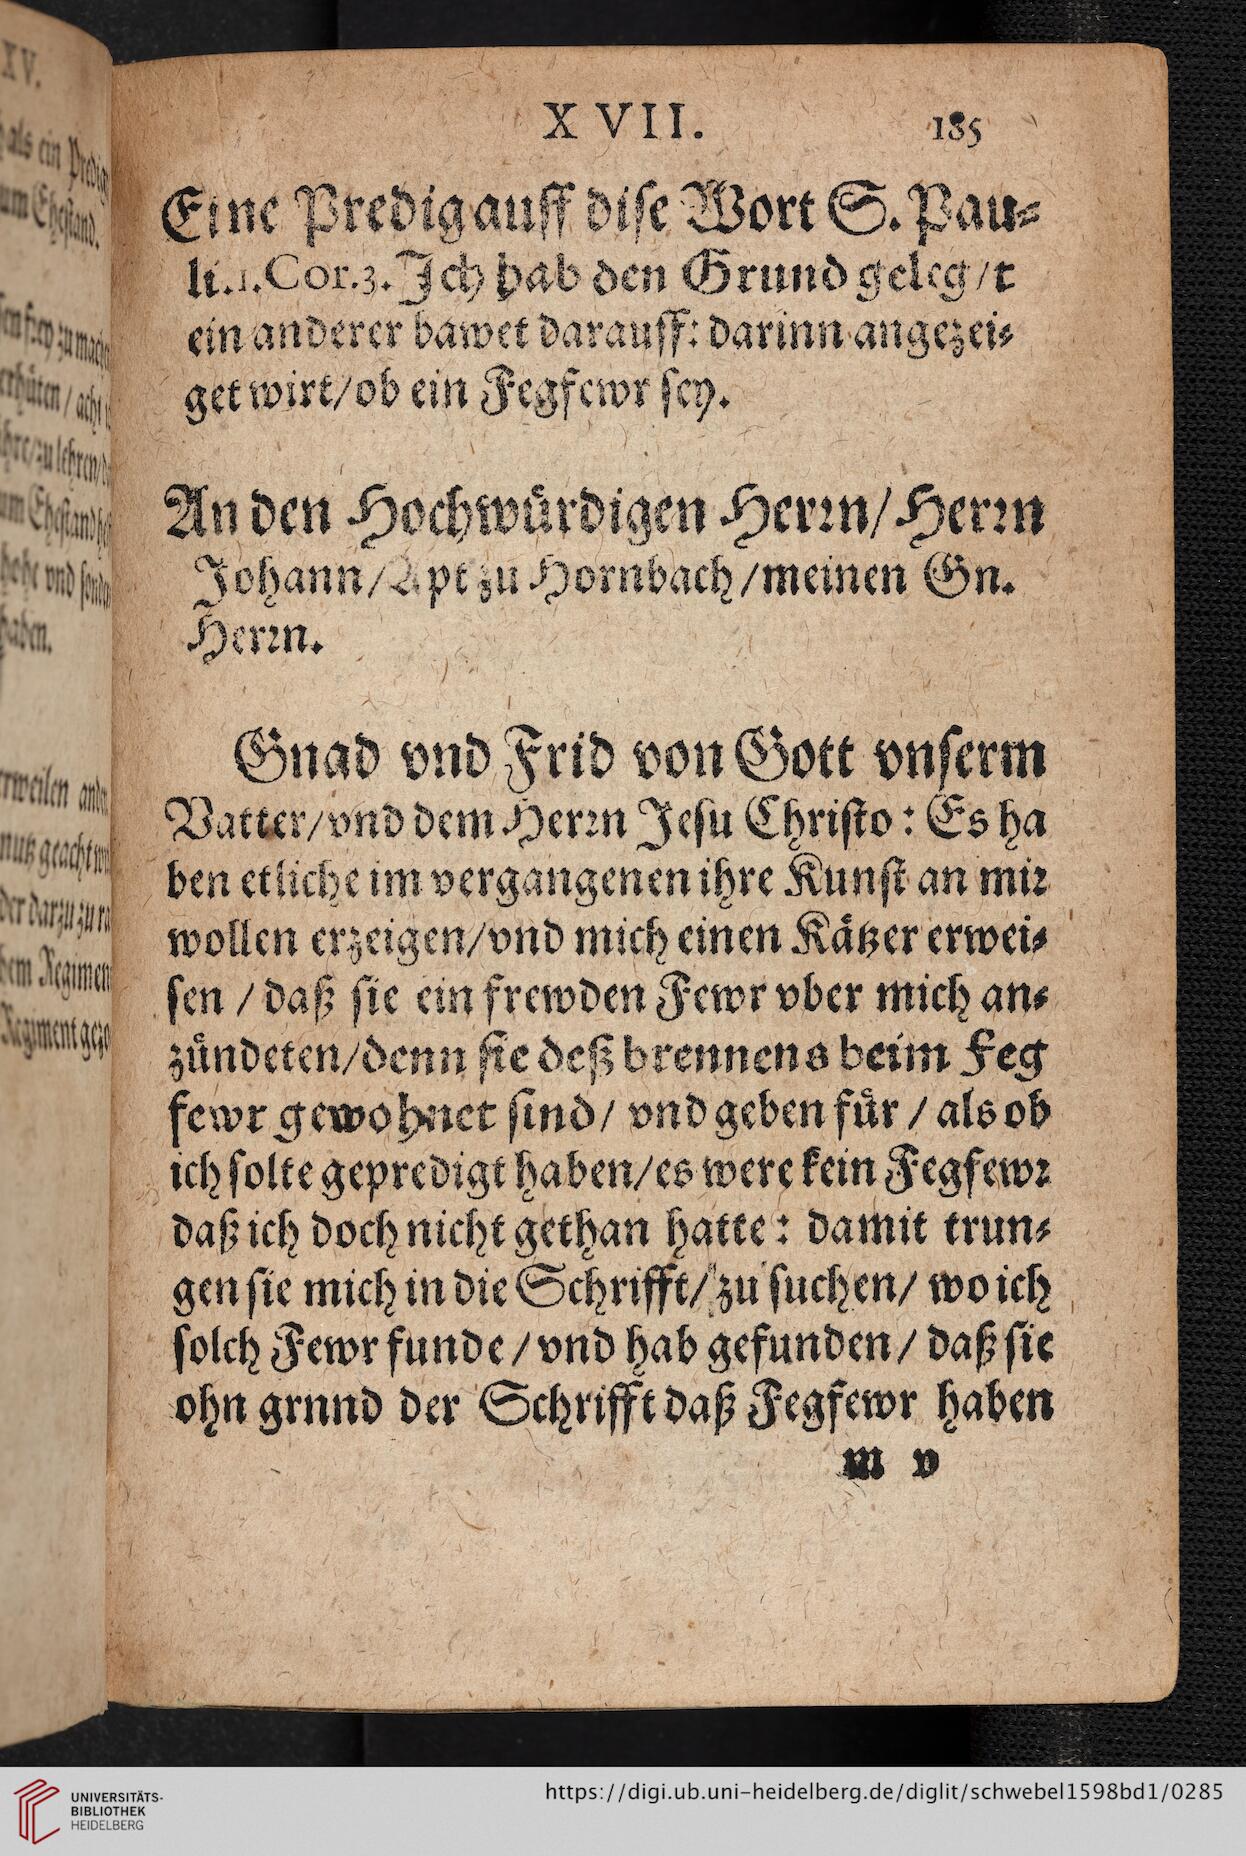 XVII. 185
Eine Predig auff dise Wort S. Pau⸗
li. 1. Cor. 3. Ich hab den Grund geleg/t
ein anderer bawet darauff: darinn angezei⸗
get wirt/ ob ein Fegfewr sey.
An den Hochwürdigen Herrn/ Herrn
Johann/ Apt zu Hornbach/ meinen Gn.
Herrn.
Gnad vnd Frid von Gott vnserm
Vatter/ vnd dem Herrn Jesu Christo: Es ha
ben etliche im vergangenen ihre Kunst an mir
wollen erzeigen/ vnd mich einen Kätzer erwei⸗
sen / daß sie ein frewden Fewr vber mich an⸗
zündeten/ denn sie deß brennens beim Feg
fewr gewohnet sind/ vnd geben für / als ob
ich solte gepredigt haben/ es were kein Fegfewr
daß ich doch nicht gethan hatte: damit trun⸗
gen sie mich in die Schrifft/ zu suchen/ wo ich
solch Fewr funde / vnd hab gefunden/ daß sie
ohn grnnd der Schrifft daß Fegfewr haben
m v
XV.
als ein Predig
zum Ehestand.
UNIVERSITÄTS-
BIBLIOTHEK
HEIDELBERG
https://digi.ub.uni-heidelberg.de/diglit/schwebel1598bd1/0285